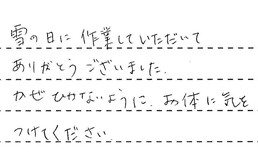 雪の日に作業していただいて
ありがとうございました.
かぜひかないように.お体に気を
つけてください